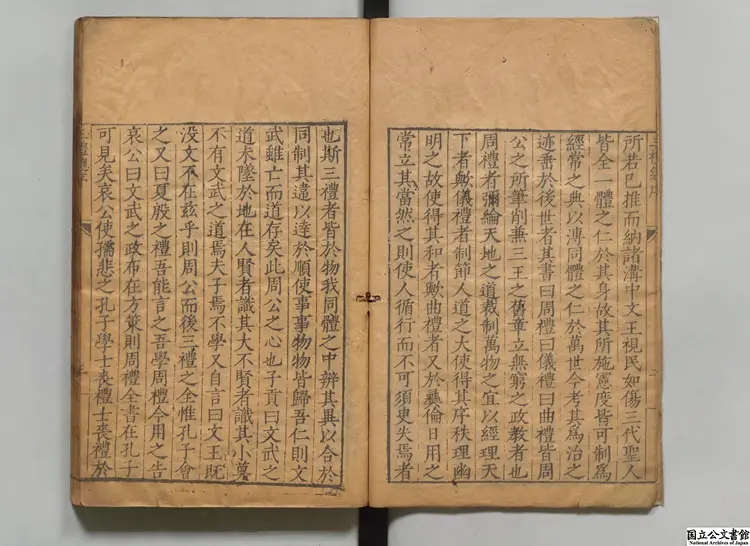 所若已推而納諸溝中文王視民如傷三代聖人
皆全一體之仁於其身故其所施憲度皆可制為
經常之典以溥同體之仁於萬世今考其為治之
迹垂於後世者其書曰周禮曰儀禮曰曲禮皆周
公之所筆削兼三王之舊章立無窮之政教者也
周禮者彌綸天地之道裁制萬物之宜以經理天
下者歟儀禮者制節人道之大使得其序秩理幽
明之故使得其和者歟曲禮者又於彞倫日用之
常立其當然之則使人循行而不可須臾失焉者
也斯三禮者皆於物我同體之中辨其異以合於
同制其違以達於順使事事物物皆歸吾仁則文
武雖亡而道存矣此周公之心也子貢曰文武之
道未墜於地在人賢者識其大不賢者識其小莫
不有文武之道焉夫子焉不學又自言曰文王既
没文不在玆乎則周公而後三禮之全惟孔子會
之又曰夏殷之禮吾能言之吾學周禮今用之告
哀公曰文武之政布在方策則周禮全書在孔子
可見矣哀公使孺悲之孔子學士喪禮士喪禮於
国立公文書館
National Archives of Japan